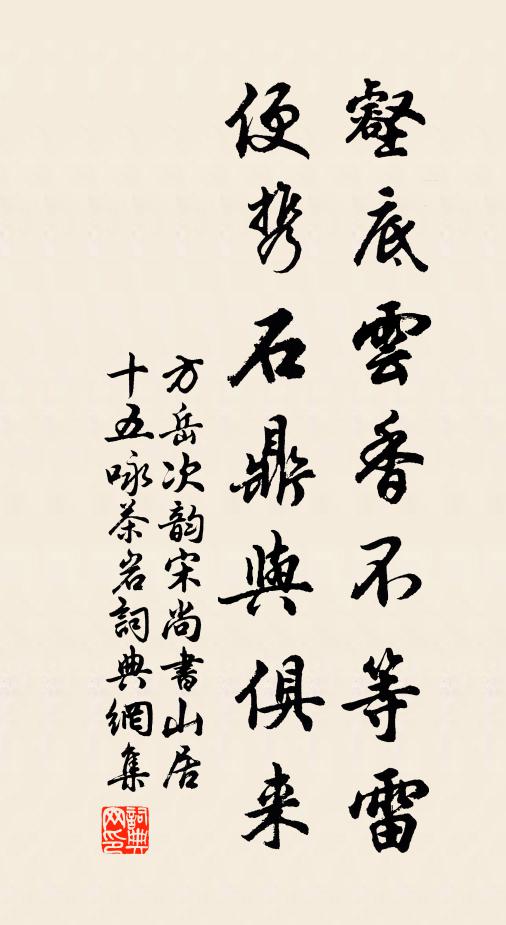 壑底雲香不等雷
便携石鼎與俱来
方岳次韵宋尚書山居
十五咏茶岩詞典網集
詞典
网印